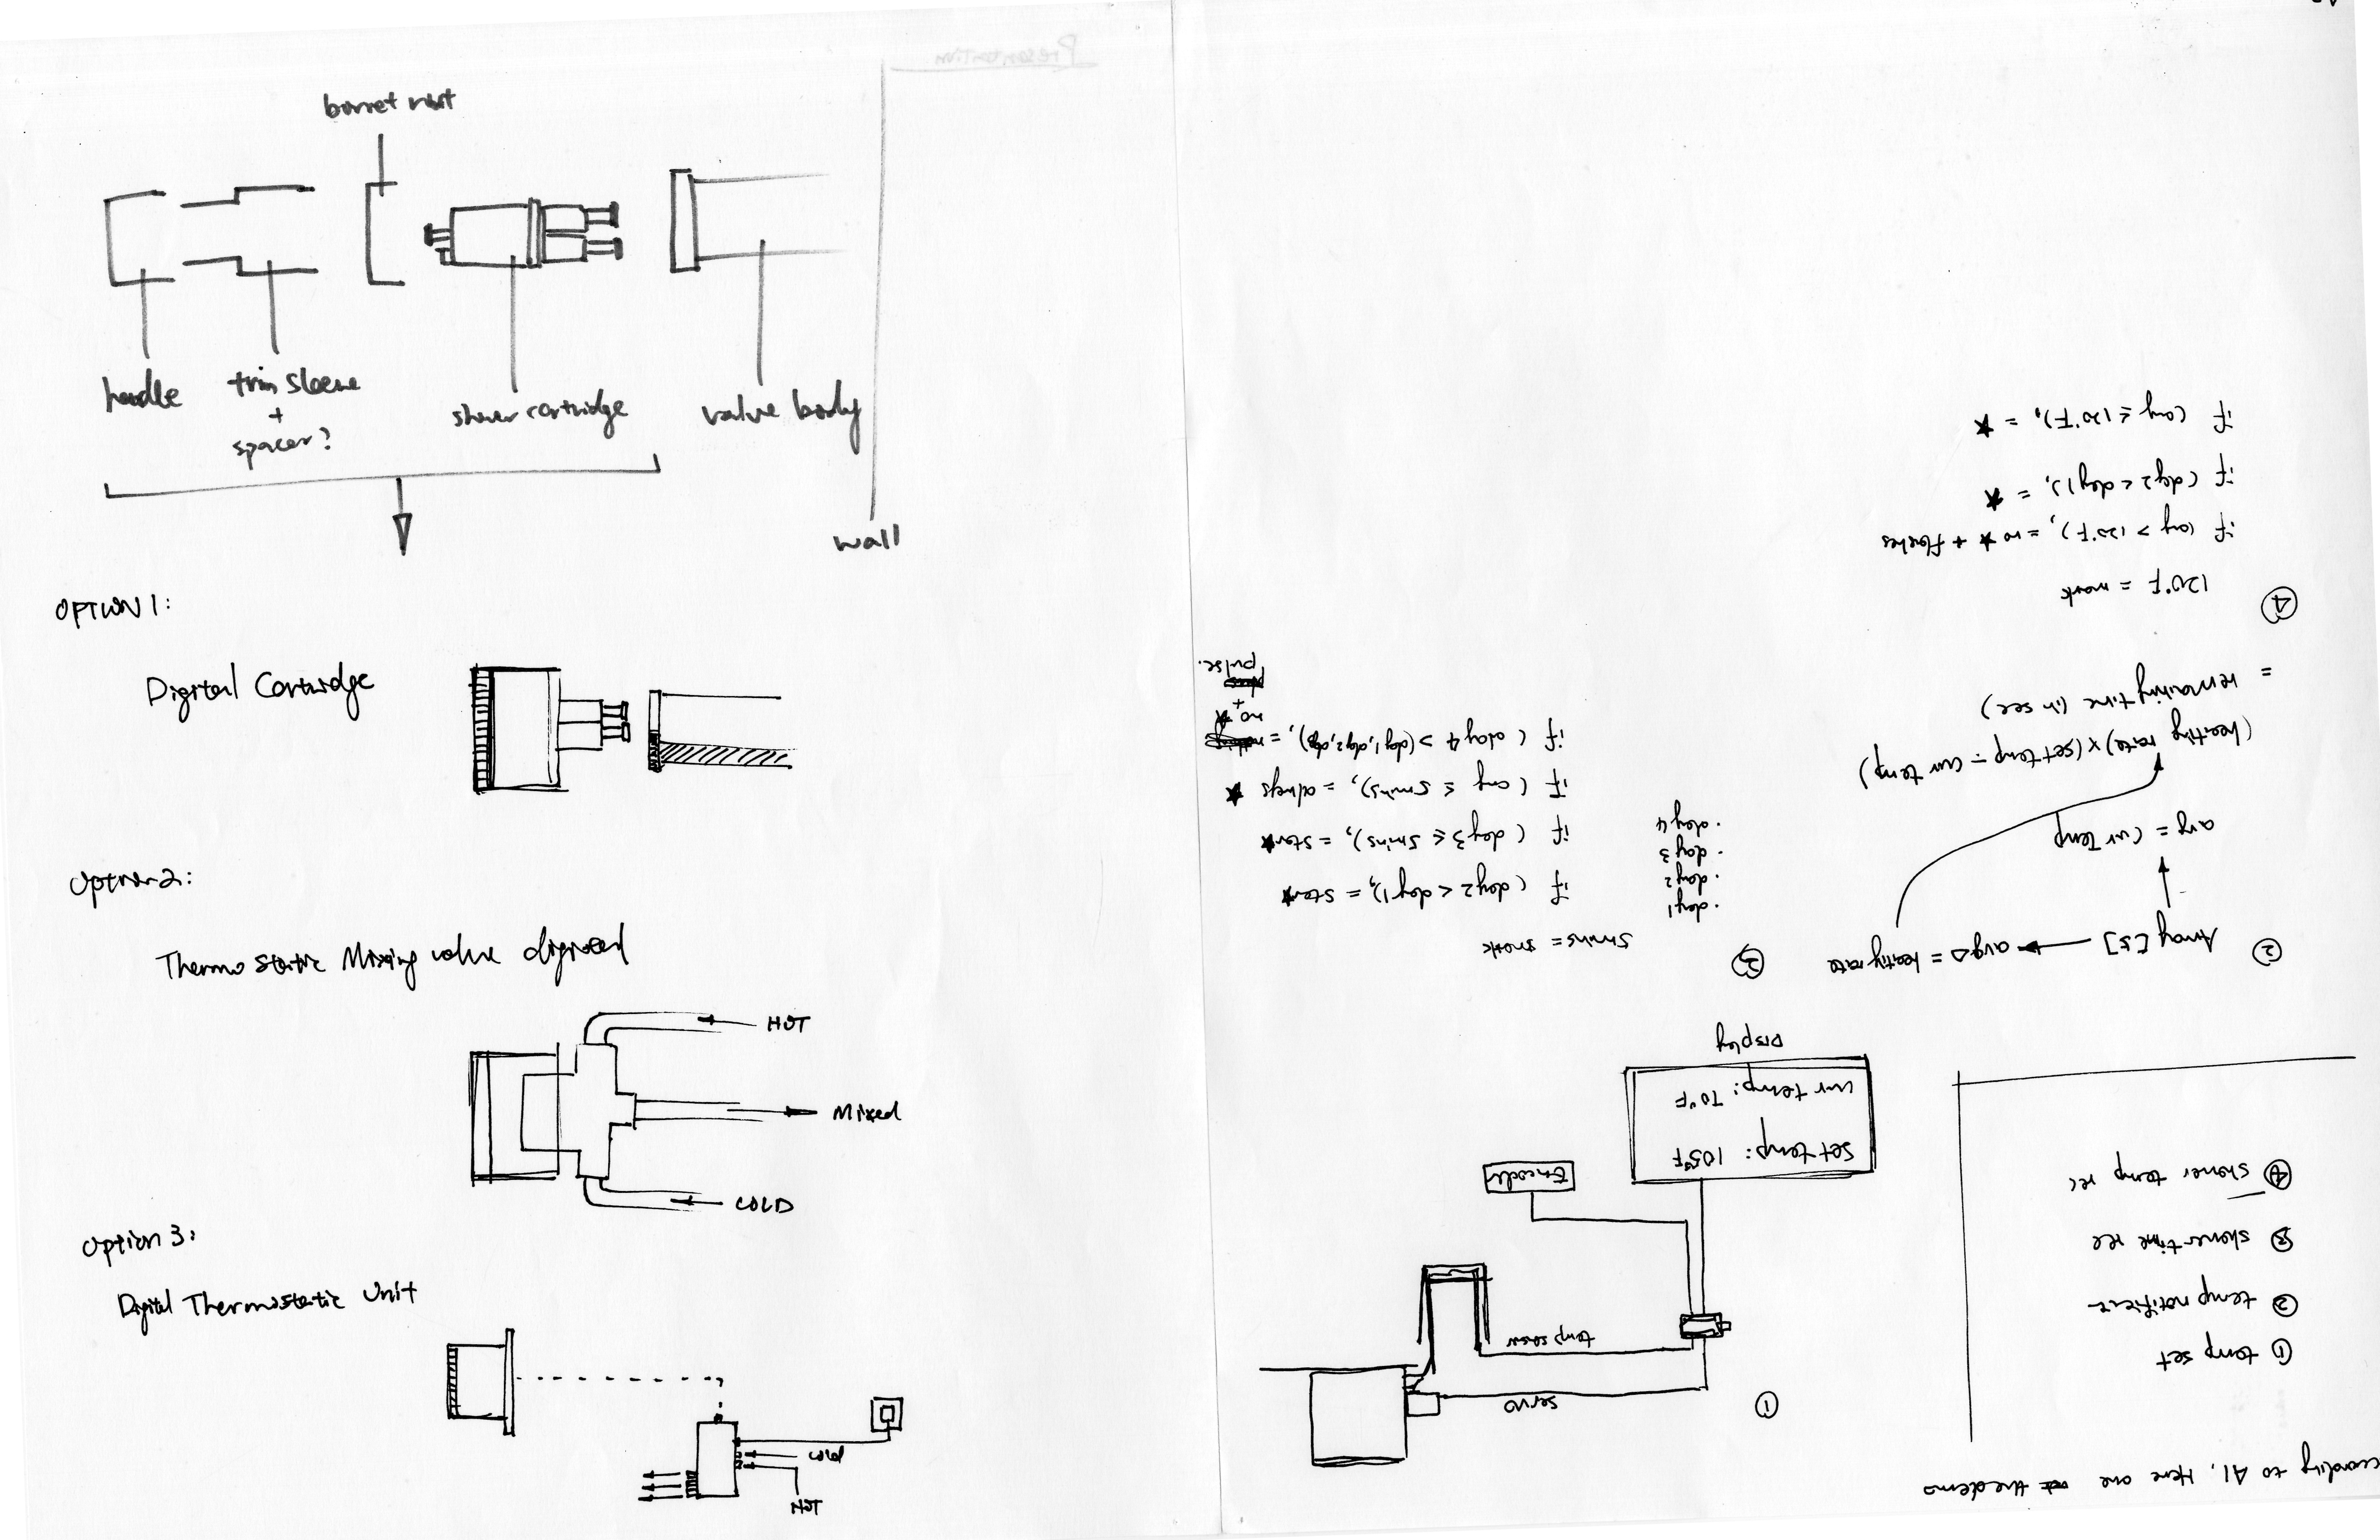 bonnet nut
handle
trim sleeve
+
spacer?
shower cartridge
valve body
wall
OPTION 1:
Digital Cartridge
Option 2:
Thermo static Mixing valve digital
HOT
Mixed
COLD
Option 3:
Digital Thermostatic Unit
cold
HOT
Presentation
according to A1, Here are the demo
① temp set
② temp notifier
③ shower time rec
④ shower temp rec
①
servo
temp sensor
Encoder
set temp: 105°F
curr temp: 70°F
Display
②
Array [5] → avg Δ = heating rate
avg = curr temp
(heating rate) x (set temp - curr temp)
= remaining time (in sec)
③
5 mins = mark
. day1
. day2
. day3
. day4
if (day2 < day1), = star ★
if (day3 ≤ 5mins), = star ★
if (any ≤ 5 mins), = always ★
if (day4 > (day1, day2, day3), = no ★
+
pulse.
④
120°F = mark
if (any > 120°F), = no ★ + flashes
if (day2 < day1), = ★
if (any ≤ 120°F), = ★